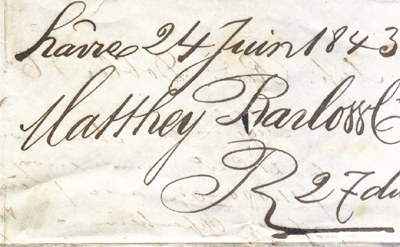 hâvre 24 Juin 1843
Matthey Barlow
R 27 du